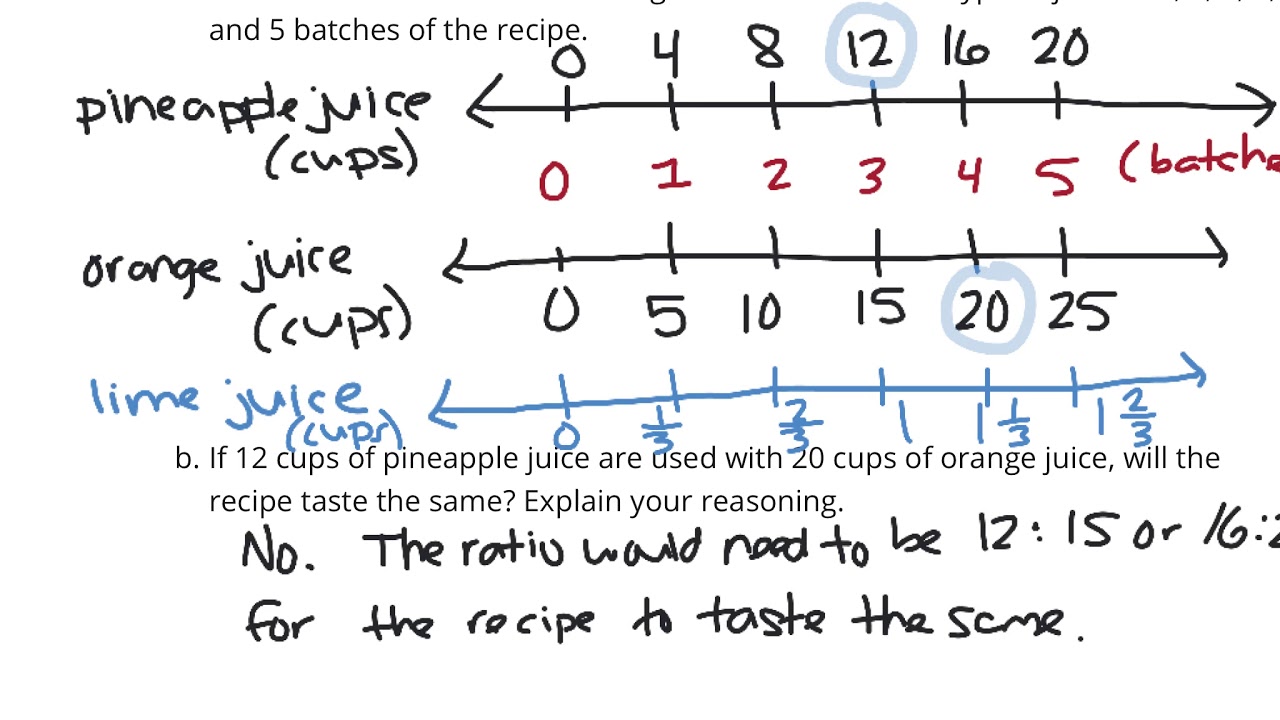 and 5 batches of the recipe.
0 4 8 12 16 20
pineapple juice
(cups)
0 1 2 3 4 5 (batche
orange juice
(cups)
0 5 10 15 20 25
lime juice
(cups)
0 1/3 2/3 1 1 1/3 1 2/3
b. If 12 cups of pineapple juice are used with 20 cups of orange juice, will the
recipe taste the same? Explain your reasoning.
No. The ratio would need to be 12:15 or 16:2
for the recipe to taste the same.